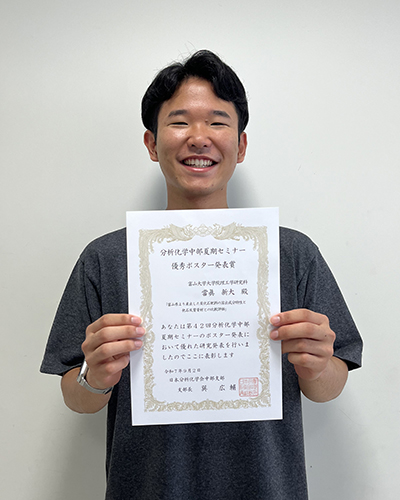 分析化学中部夏期セミナー
優秀ポスター発表賞
富山大学大学院理工学研究科
當眞 新大 殿
あなたは第42回分析化学中部
夏期セミナーのポスター発表に
おいて優れた研究発表を行いま
したのでここに表彰します
令和7年9月2日
日本分析化学会中部支部
支部長 巽 広輔